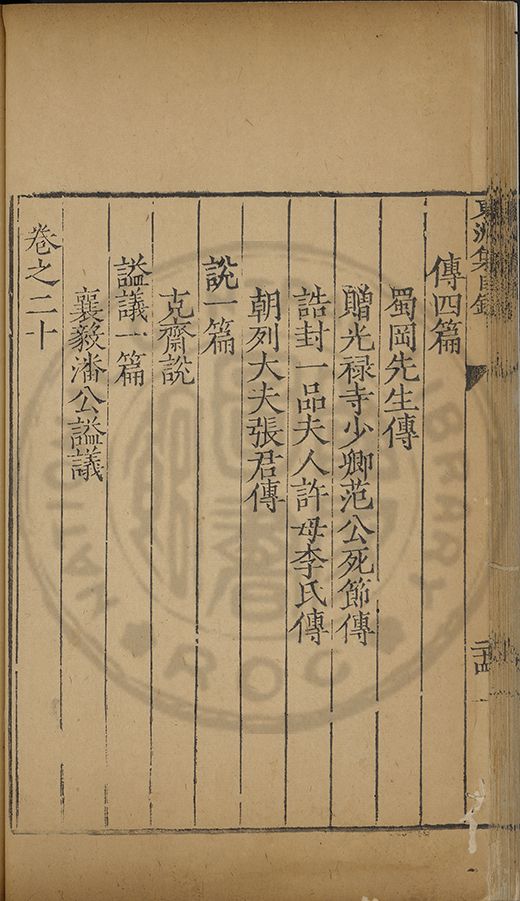 東洲集目録
二十四
傳四篇
蜀岡先生傳
贈光禄寺少卿范公死節傳
誥封一品夫人許母李氏傳
朝列大夫張君傳
說一篇
克齋說
謚議一篇
襄毅潘公謚議
卷之二十